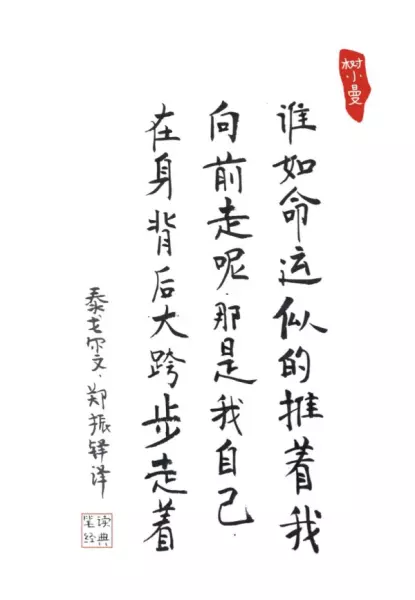 树小曼
谁如命运似的推着我
向前走呢·那是我自己·
在身背后大跨步走着
泰戈尔文·郑振铎译
笔读经典